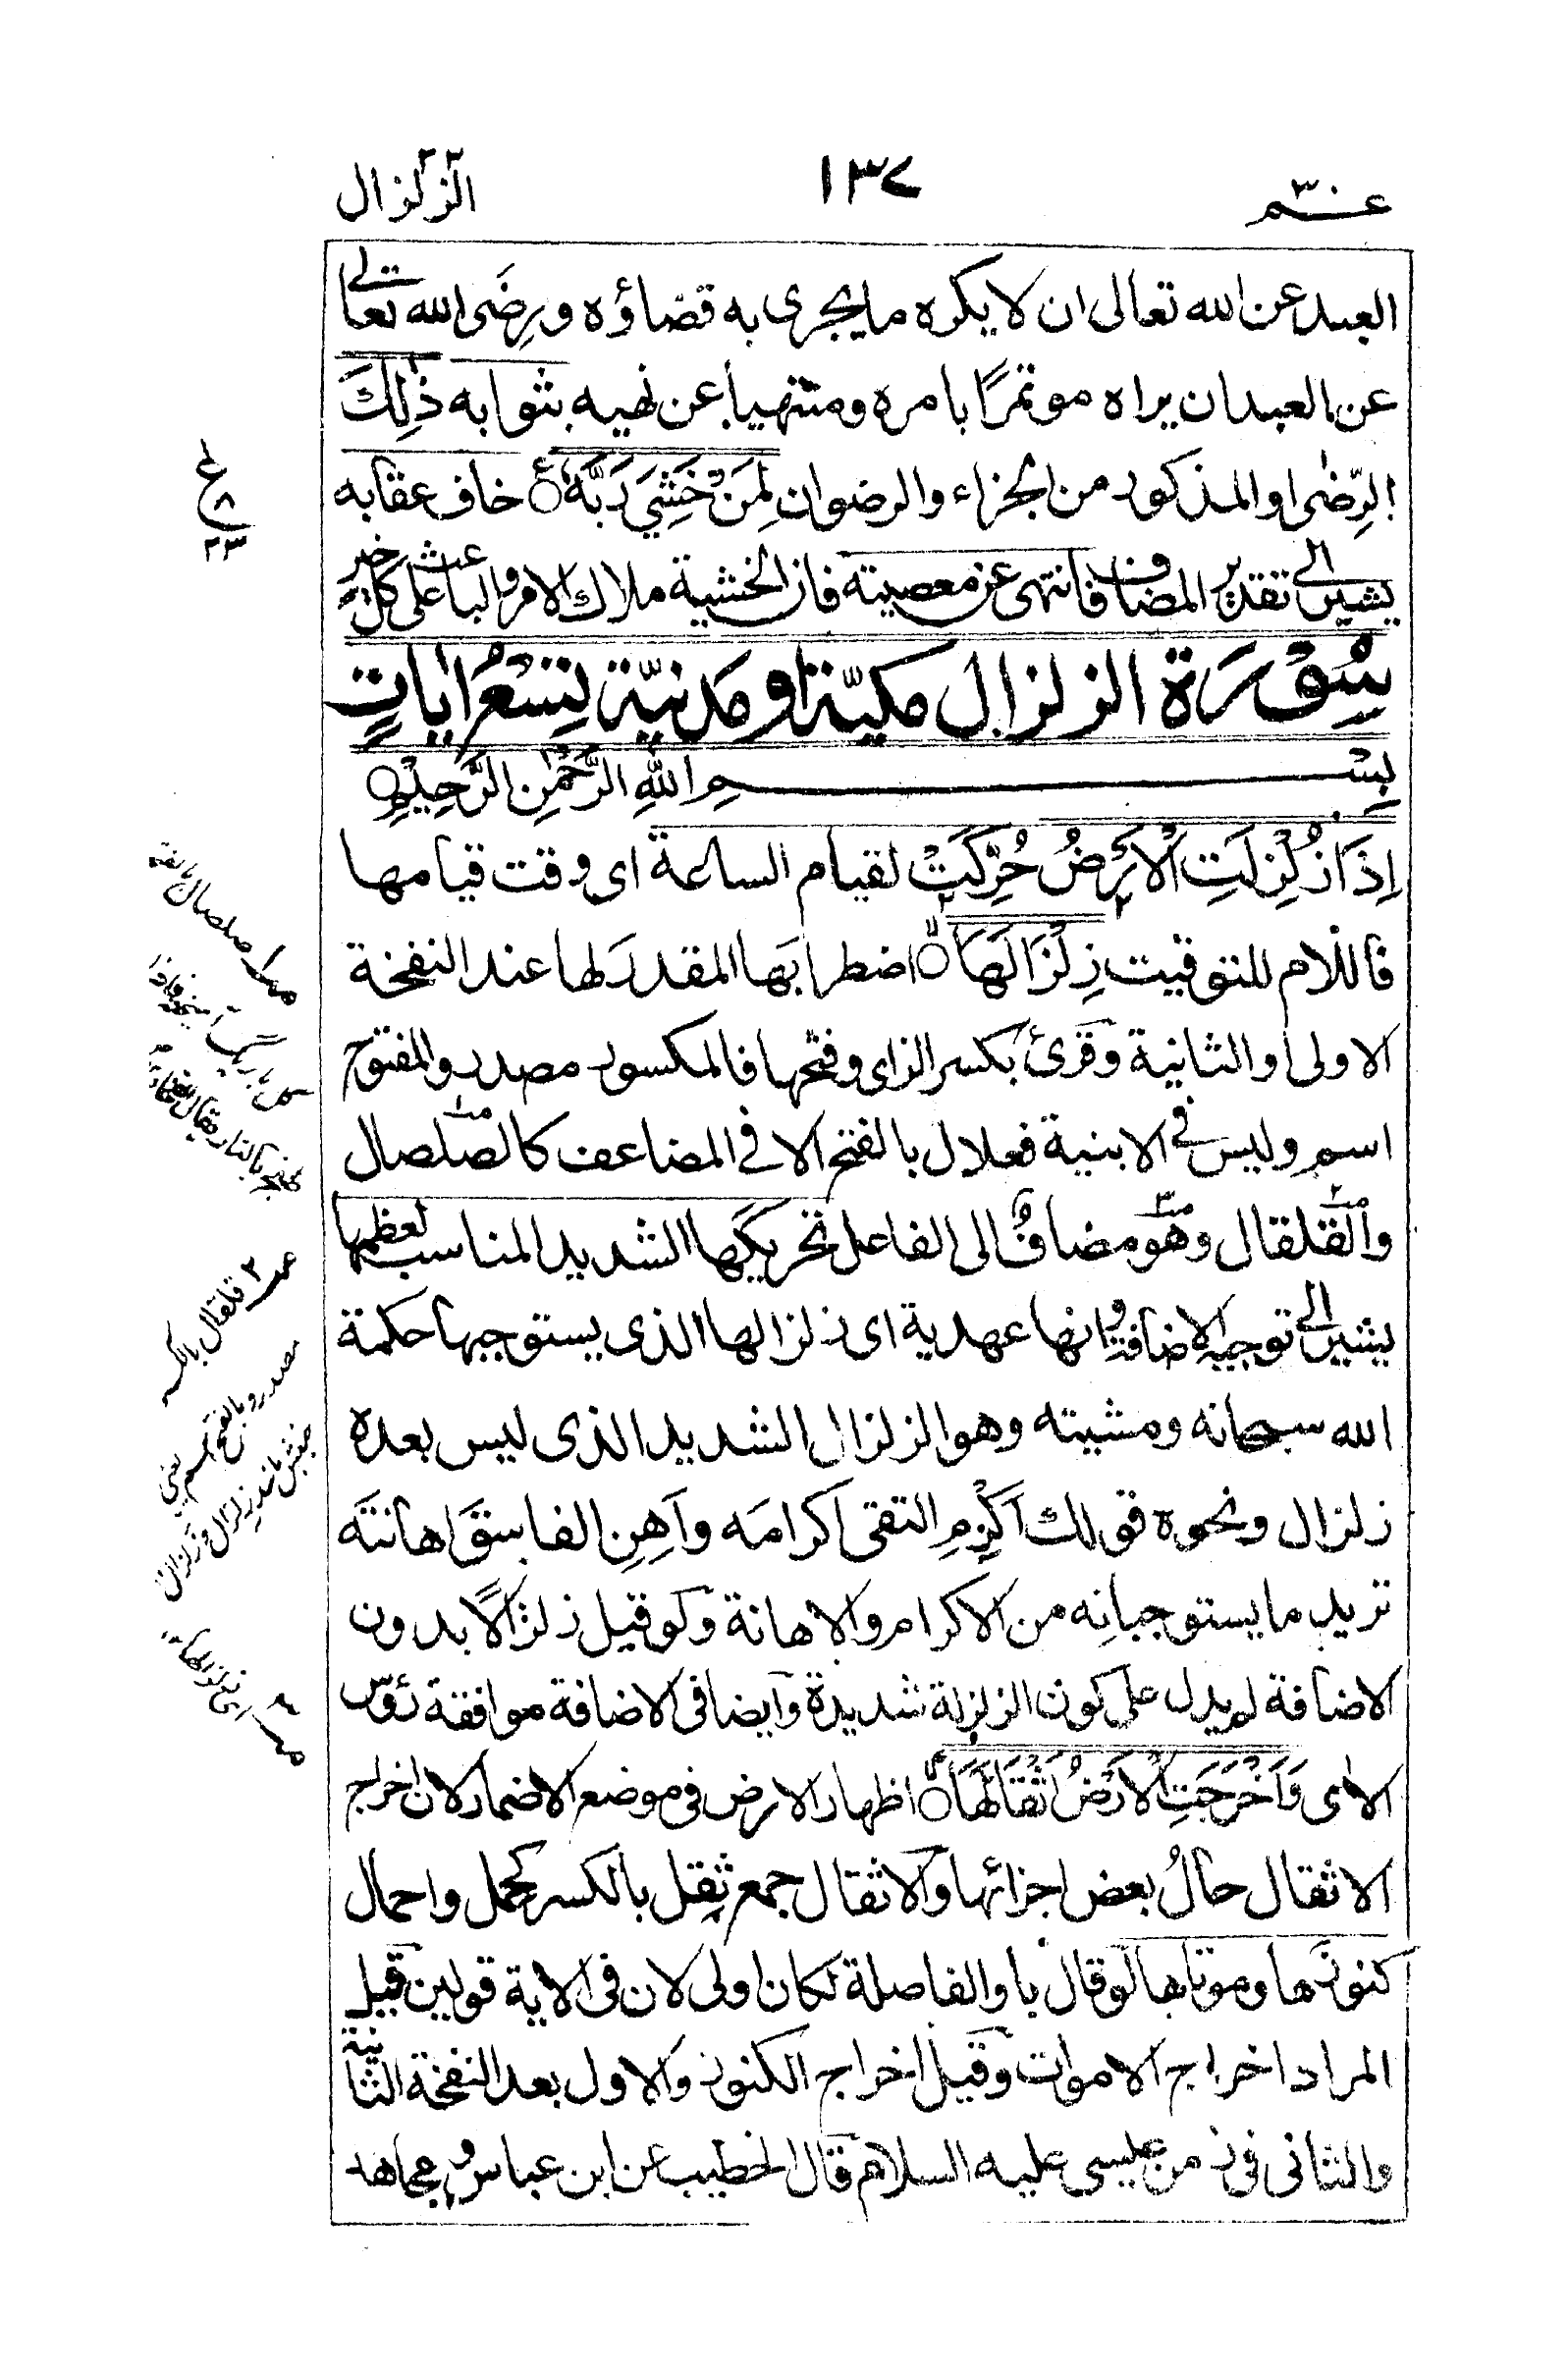 عم ٣٠
١٣٧
الزلزال ٩٩
العبد عن الله تعالى ان لا يكره ما يجرى به قضاؤه ورِضَى الله تعالى
عن العبد ان يراه موتمرًا بامره ومنتهيا عن نهيه بثوابه ذٰلِكَ
الرِّضٰى او المذكور من الجزاء والرضوان لِمَنْ خَشِيَ رَبَّهٗ خاف عقابه
يشير الى تقدير المضاف فانتهى عن معصيته فان الخشية ملاك الامر والباعث على كل خير
سُوْرَة الزلزال مكيّة او مَدنيّة تِسْعُ اٰياتٍ
بِسْمِ اللهِ الرَّحْمٰنِ الرَّحِيْمِ
اِذَا زُلْزِلَتِ الْاَرْضُ حُرِّكَتْ لقيام الساعة اى وقت قيامها
فاللام للتوقيت زِلْزَالَهَا اضطرابَها المقدرَ لها عند النفخة
الاولى او الثانية وقرئ بكسر الزاى وفتحها فالمكسور مصدر والمفتوح
اسم وليس فى الابنية فعلال بالفتح الا فى المضاعف كالصلصال
والقلقال وهو مضافٌ الى الفاعل تحريكها الشديد المناسب لعظمها
يشير الى توجيه الاضافة وانها عهدية اى زلزالها الذى يستوجبها حكمة
الله سبحانه ومشيته وهو الزلزال الشديد الذى ليس بعده
زلزال ونحوه قولك اَكْرِمِ التقى اكرامَه واَهِنِ الفاسقَ اهانتَه
تريد ما يستوجبانِه من الاكرام والاهانة ولو قيل زلزالًا بدون
الاضافة لم يدل على كون الزلزلة شديدة وايضا فى الاضافة موافقة رؤس
الاٰى وَاَخْرَجَتِ الْاَرْضُ اَثْقَالَهَا اظهار الارض فى موضع الاضمار لان اخراج
الاثقال حالُ بعض اجزائها والاثقال جمع ثِقل بالكسر كحمل واحمال
كنوزَها وموتاها لو قال باو الفاصلة لكان اولى لان فى الاية قولين قيل
المراد اخراج الاموات وقيل اخراج الكنوز والاول بعد النفخة الثانية
والثانى فى زمن عيسى عليه السلام قال الخطيب عن ابن عباس ومجاهد
ع ٨ ٢٣
صلصال بالفتح
قلقال بالكسر
مصدر وبالفتح اسم يعنى